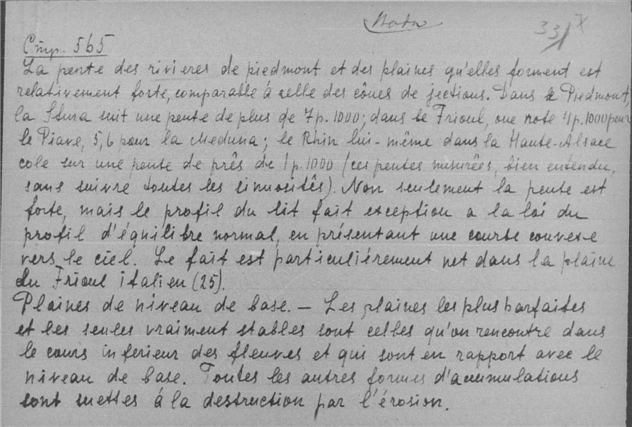 Вода
331
Стр. 565
La pente des rivieres de piedmont et des plaines qu'elles forment est
relativement forte, comparable à celle des cônes de jections. Dans le Piedmont,
la Stura suit une pente de plus de 7 p. 1000; dans le Frioul, one note 4 p. 1000 pour
le Piave, 5,6 pour la Meduna; le Rhin lui-même dans la Haute-Alsace
cole sur une pente de près de 1 p. 1000 (ces pentes misurées, bien entendu,
sans suivre toutes les sinuosités). Non seulement la pente est
forte, mais le profil du lit fait exception a la loi du
profil d'équilibre normal, en présentant une courbe convexe
vers le ciel. Le fait est particuliérement net dans la plaine
du Frioul italien (25).
Plaines de niveau de base. — Les plaines les plus parfaites
et les seules vraiment stables sont celles qu'on rencontre dans
le cours inferieur des fleuves et qui sont en rapport avec le
niveau de base. Toutes les autres formes d'acumulations
sont suettes á la destruction par l'érosion.